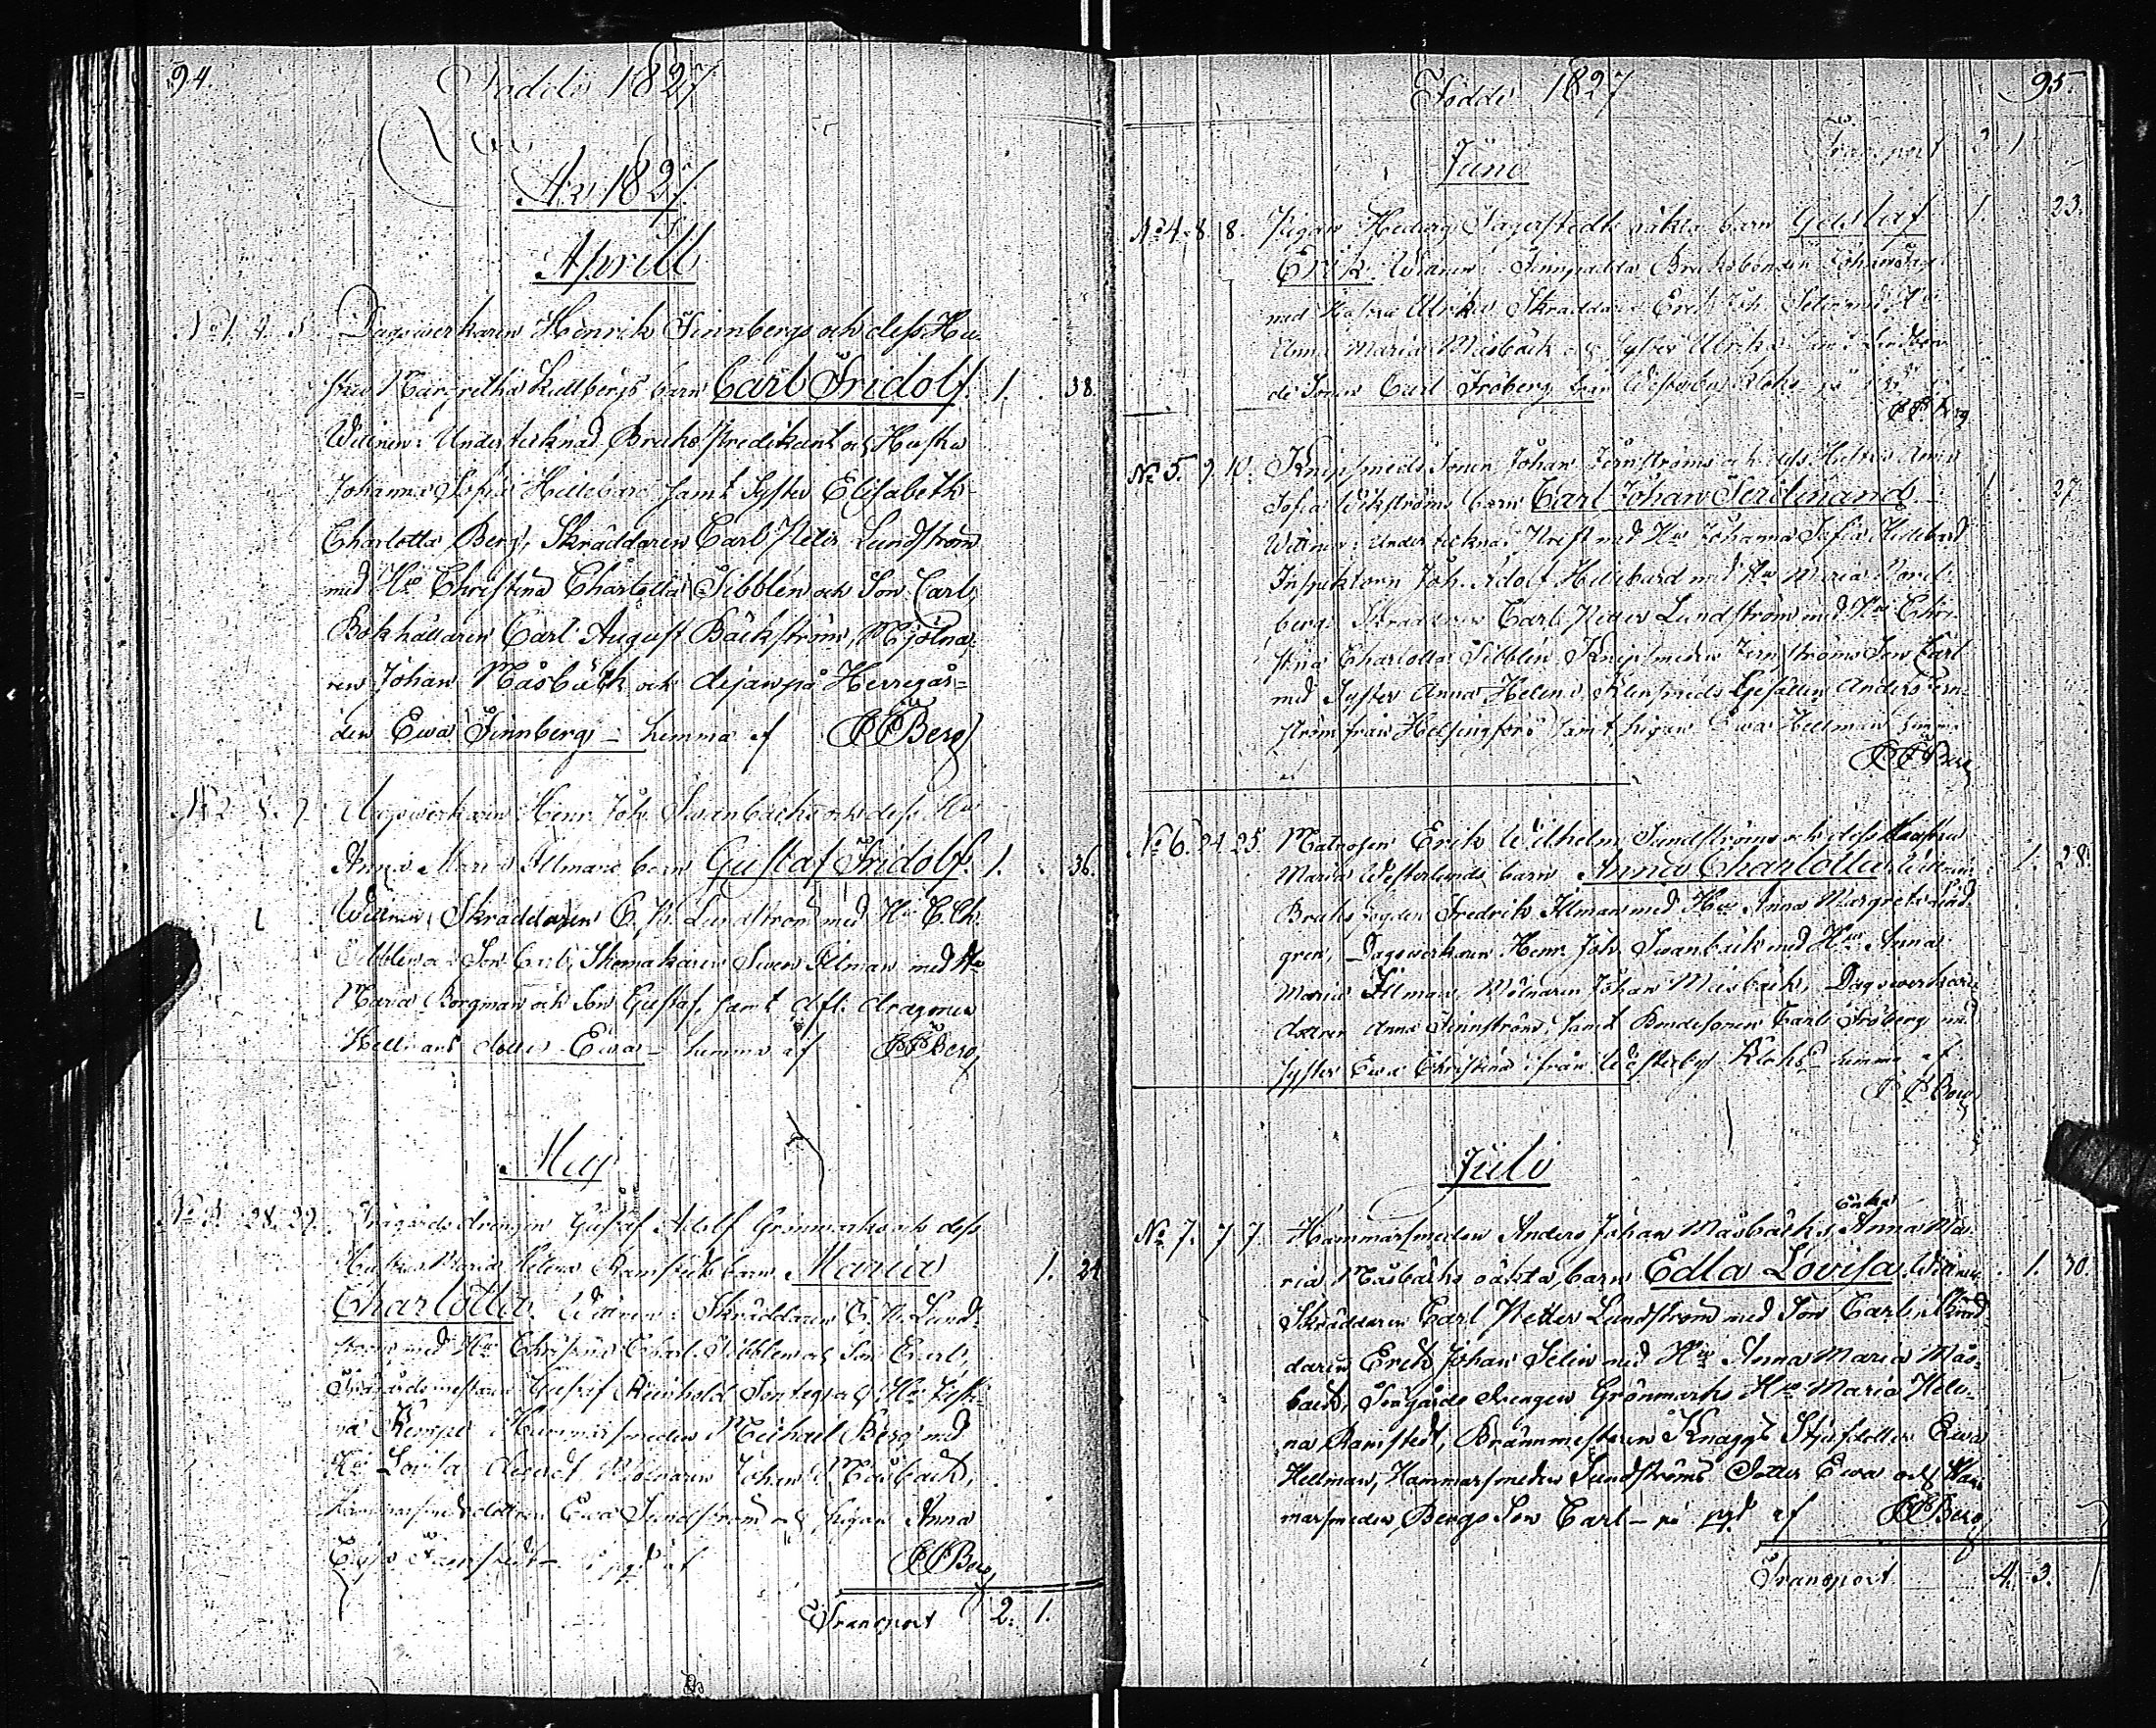 94.
Födde 1827
År 1827.
Aprill
No 1. 4. 5. Dagsverkaren Henrik Finnbergs och dess Hu-
stru Margretha Kullbergs barn Carl Fridolf. 1. 38.
Wittnen: Undertecknad Bruks Predikant och Hustru
Johanna Sofia Hellebard samt Syster Elisabeth
Charlotta Berg, Skräddaren Carl Peter Lundström
med Hu Christina Charlotta Sibblen och Son Carl,
Bokhållaren Carl August Bäckström, Mjölna-
ren Johan Måsbäck och dejan på Herregår=
den Ewa Finnberg – hemma af PPBerg
No 2. 8. 9. Dagsverkaren Henr. Joh. Swanbäcks och dess Hu
Anna Maria Illmans barn Gustaf Fridolf. 1. 36.
Wittnen Skräddaren C. P. Lundström med Hu C Ch.
Sibblen och Son Carl, Skomakaren Swen Illman med Hu
Maria Borgman och Son Gustaf, samt aft. dragonen
Hellmans dotter Ewa – hemma af PPBerg
Maij
No 3. 28. 29. Trägårdsdrängen Gustaf Adolf Grönmarks och dess
Hustrus Maria Helena Ramstedts barn Maria 1. 24
Charlotta. Wittnen: Skräddaren C. P. Lund-
ström med Hu Christina Charl. Sibblen och Son Carl,
Trägårdsmästaren Gustaf Reinhold och Hu
Kempe Hammarsmeden Michael Berg med
Hu Lovisa Mölnaren Johan Måsbäck,
Hammarsmedsdottren Ewa Sundström och pigan Anna
Ramstedt – af PPBerg
Transport 2. 1.
Födde 1827 95.
Juni Transport 2. 1
No 4. 8. 8. Pigan Hedvig Fagerstedts oäkta barn Gustaf 1. 23.
Erik. Wittnen: Bruksbonden Johan
med Hustru Ulrika Skräddaren Erik Joh. Selin med Hu
Anna Maria Måsbäck och Syster Ulrika samt
de Sonen Carl Fröberg från Westerby Rloks
PPBerg
No 5. 9. 10. Knipsmeds Sonen Johan Jernströms och dess Hustrus Anna
Sofia Wikströms barn Carl Johan Ferdinand 1. 27.
Wittnen: Undertecknad Prest med Hu Johanna Sofia Hellebard
Inspektorn Joh. Adolf Hellebard med Hu Maria
berg Skräddaren Carl Petter Lundström med Hu Chri-
stina Charlotta Sibblen Knipsmeden Jernströms Son Carl
med Syster Anna Helena, Klensmeds Gesällen Anders Jern-
ström från Helsingfors samt pigan Ewa Hellman hemma
af PPBerg
No 6. 24. 25. Matrosen Erik Wilhelm Sundströms och dess Hustrus
Maria Westerlunds barn Anna Charlotta. Wittnen: 1. 28.
Bruks fogden Fredrik Illman med Hu Anna Margreta Lind-
gren, Dagsverkaren Henr. Joh. Swanbäck med Hu Anna
Maria Illman, Mölnaren Johan Måsbäck, Dagsverkare
dottren Anna Finnström, samt Bondesonen Carl Fröberg med
Syster Ewa Christina ifrån Westerby Rloks – hemma af
PPBerg
Juli
No 7. 7 7. Hammarsmeden Anders Johan Måsbäcks Enka Anna Ma-
ria Måsbäcks oäkta barn Edla Lovisa. Wittnen: 1. 30.
Skräddaren Carl Petter Lundström med Son Carl, Skräd-
daren Erik Johan Selin med Hu Anna Maria Mås-
bäck, Trägårds Drengen Grönmarks Hu Maria Hele-
na Ramstedt, Brännmästaren Knaggs Styfdotter Ewa
Hellman, Hammarsmeden Sundströms Dotter Ewa och Ham-
marsmeden Bergs Son Carl – på pgd af PPBerg
Transport 4. 3.